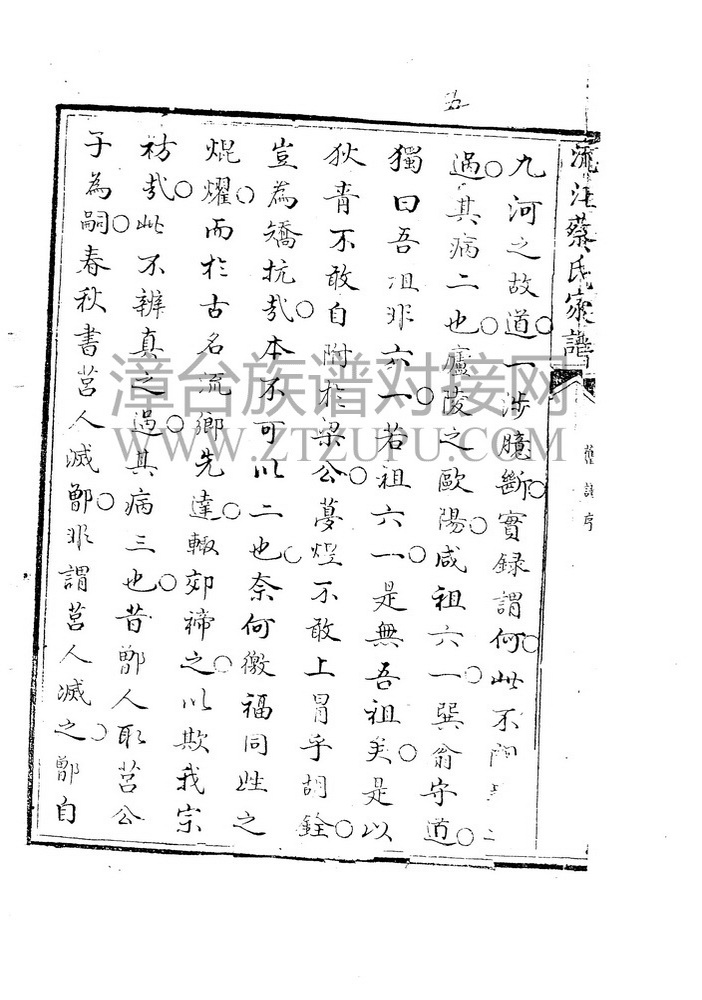 五
流江蔡氏家譜
舊譜序
九河之故道○一涉臆斷○實録謂何○此不
過○其病二也○廬陵之歐陽○咸祖六一○巽翁守道○
獨曰吾祖非六一○若祖六一○是無吾祖矣○是以
狄青不敢自附於梁公○夢炷不敢上冒乎胡銓○
豈為矯抗哉○本不可以二也○奈何徼福同姓之
焜燿○而於古名流鄉先達○輙郊禘之○以欺我宗
祊哉○此不辨真之過○其病三也○昔鄫人取莒公
子為嗣○春秋書莒人滅鄫○非謂莒人滅之○鄫自
漳台族谱对接网
WWW.ZTZUPU.COM